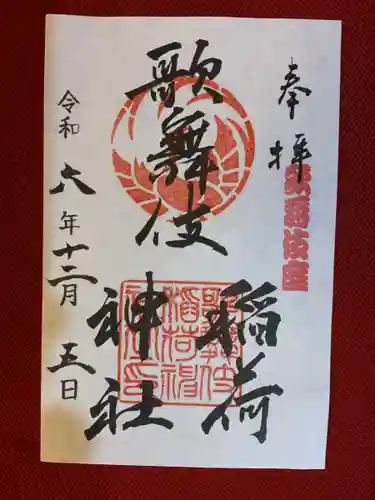 奉拝
歌舞伎座
歌舞伎
稲荷
神社
令和六年十二月五日